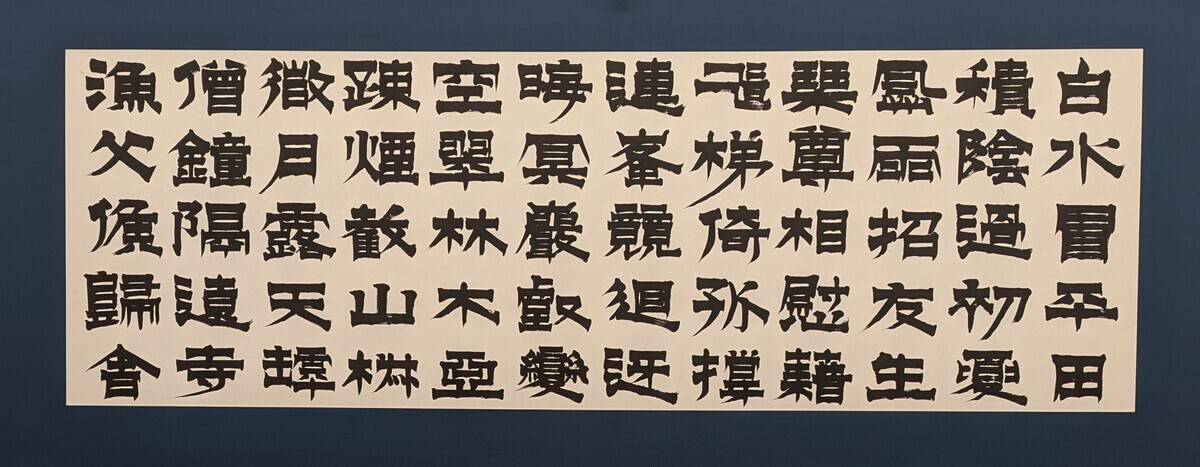 白水冒平田
積陰過初夏
風雨招友生
琹尊相慰藉
飛梯倚孤撐
連峯競迴迓
晦冥巖壑變
空翠林木亞
疎煙散山椒
微月露天罅
僧鐘隔遠寺
漁父候歸舍